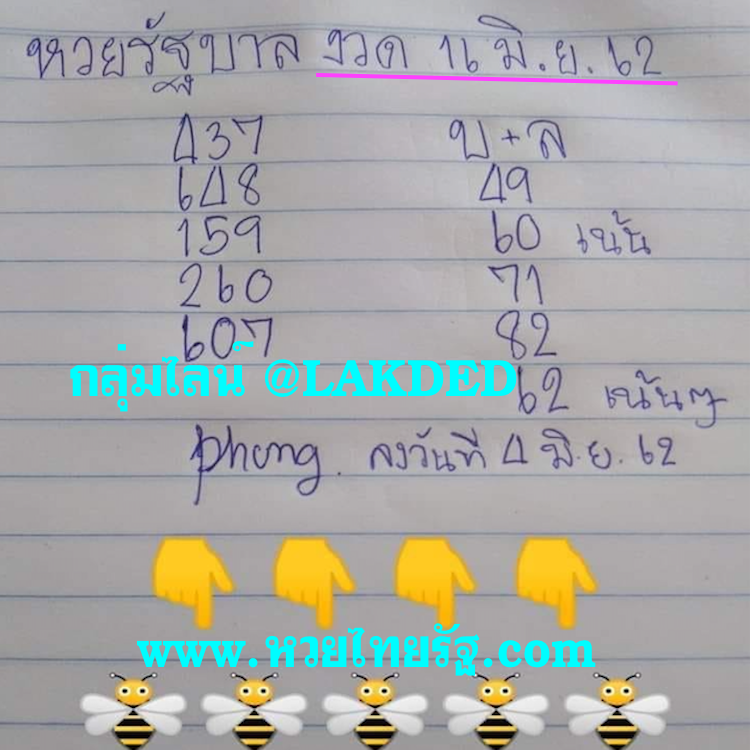 หวยรัฐบาล งวด 16 มิ.ย. 62
437 บ+ล
648 49
159 60 เน้น
260 71
607 82
กลุ่มไลน์ @LAKDED
62 เน้นๆ
phong. ลงวันที่ 4 มิ.ย. 62
www.หวยไทยรัฐ.com